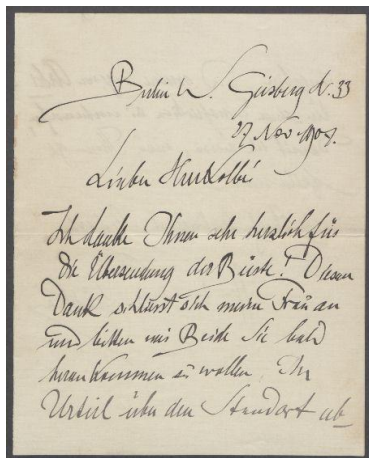 Berlin W. Geisberg Str. 33
27 Nov. 1907.
Lieber Herr Kolbe
Ich danke Ihnen sehr herzlich für
die Übersendung der Büste! Diesem
Dank schliesst sich meine Frau an
und bitten wir Beide Sie bald
herankommen zu wollen, Ihr
Urteil über den Standort ab-